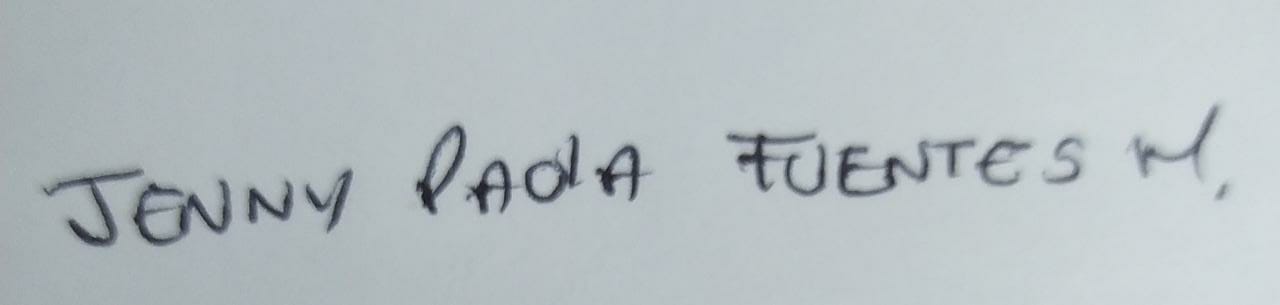 JENNY PAOlA FUENTES M.